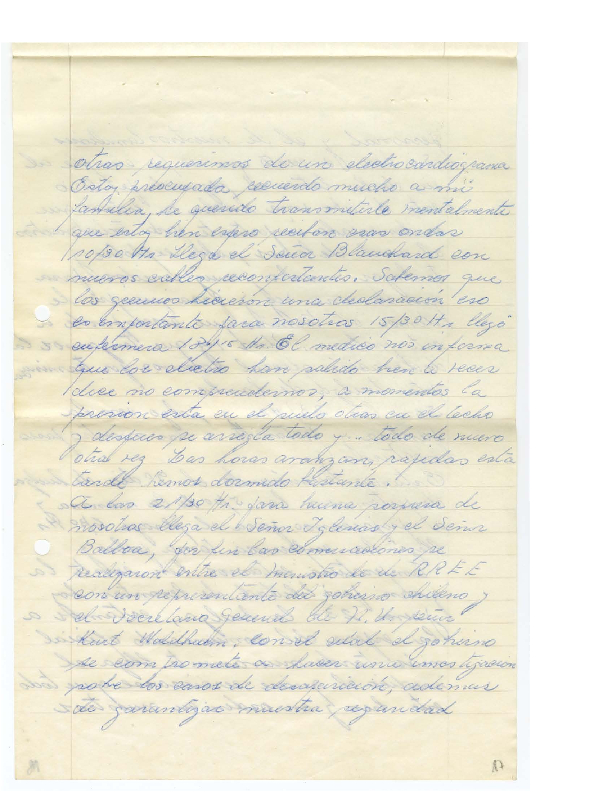 otras, requerimos de un electrocardiograma
Estoy preocupada, recuerdo mucho a mi
familia, he querido transmitirle mentalmente
que estoy bien espero reciban esas ondas
10/30 Hr llega el Señor Blanchard con
nuevos cables reconfortantes. Sabemos que
los gremios hicieron una declaración eso
es importante para nosotros 15/30 Hr llegó
enfermera Hr. El medico nos informa
que los electro han salido bien a veces
dice no comprendernos, a momentos la
presión esta en el suelo otras en el techo
y despues se arregla todo y... todo de nuevo
otra vez. Las horas avanzan, rapidas esta
tarde, hemos dormido bastante.
A las 21/30 Hr. para buena de
nosotros llega el Señor Iglesias y el Señor
Balboa, por fin las conversaciones se
realizaron entre el Ministro de R R E E
con un representante del gobierno chileno y
el Secretario General de N. U. señor
Kurt Waldheim, con el cual el gobierno
se compromete a hacer una investigación
sobre los casos de desaparición, ademas
de garantizar nuestra seguridad
17